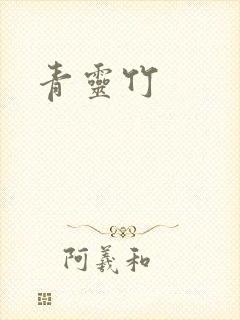 青靈竹
阿羲和